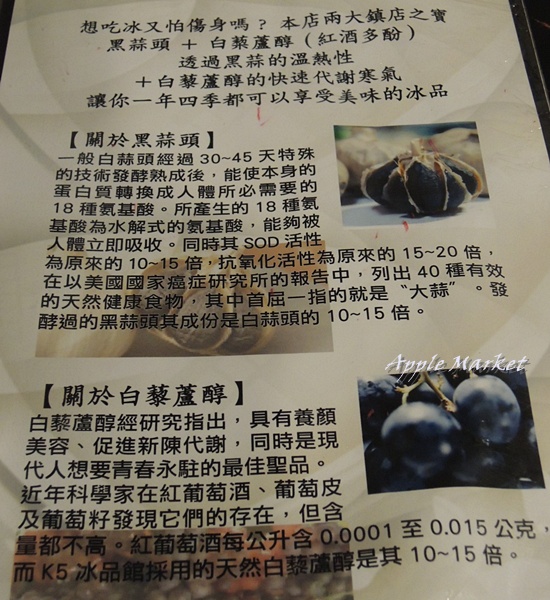 想吃冰又怕傷身嗎？本店兩大鎮店之寶
黑蒜頭 ＋ 白藜蘆醇（紅酒多酚）
透過黑蒜的溫熱性
＋白藜蘆醇的快速代謝寒氣
讓你一年四季都可以享受美味的冰品
【關於黑蒜頭】
一般白蒜頭經過 30~45 天特殊
的技術發酵熟成後，能使本身的
蛋白質轉換成人體所必需要的
18 種氨基酸。所產生的 18 種氨
基酸為水解式的氨基酸，能夠被
人體立即吸收。同時其 SOD 活性
為原來的 10~15 倍，抗氧化活性為原來的 15~20 倍，
在以美國國家癌症研究所的報告中，列出 40 種有效
的天然健康食物，其中首屈一指的就是“大蒜”。發
酵過的黑蒜頭其成份是白蒜頭的 10~15 倍。
Apple Market
【關於白藜蘆醇】
白藜蘆醇經研究指出，具有養顏
美容、促進新陳代謝，同時是現
代人想要青春永駐的最佳聖品。
近年科學家在紅葡萄酒、葡萄皮
及葡萄籽發現它們的存在，但含
量都不高。紅葡萄酒每公升含 0.0001 至 0.015 公克，
而 K5 冰品館採用的天然白藜蘆醇是其 10~15 倍。